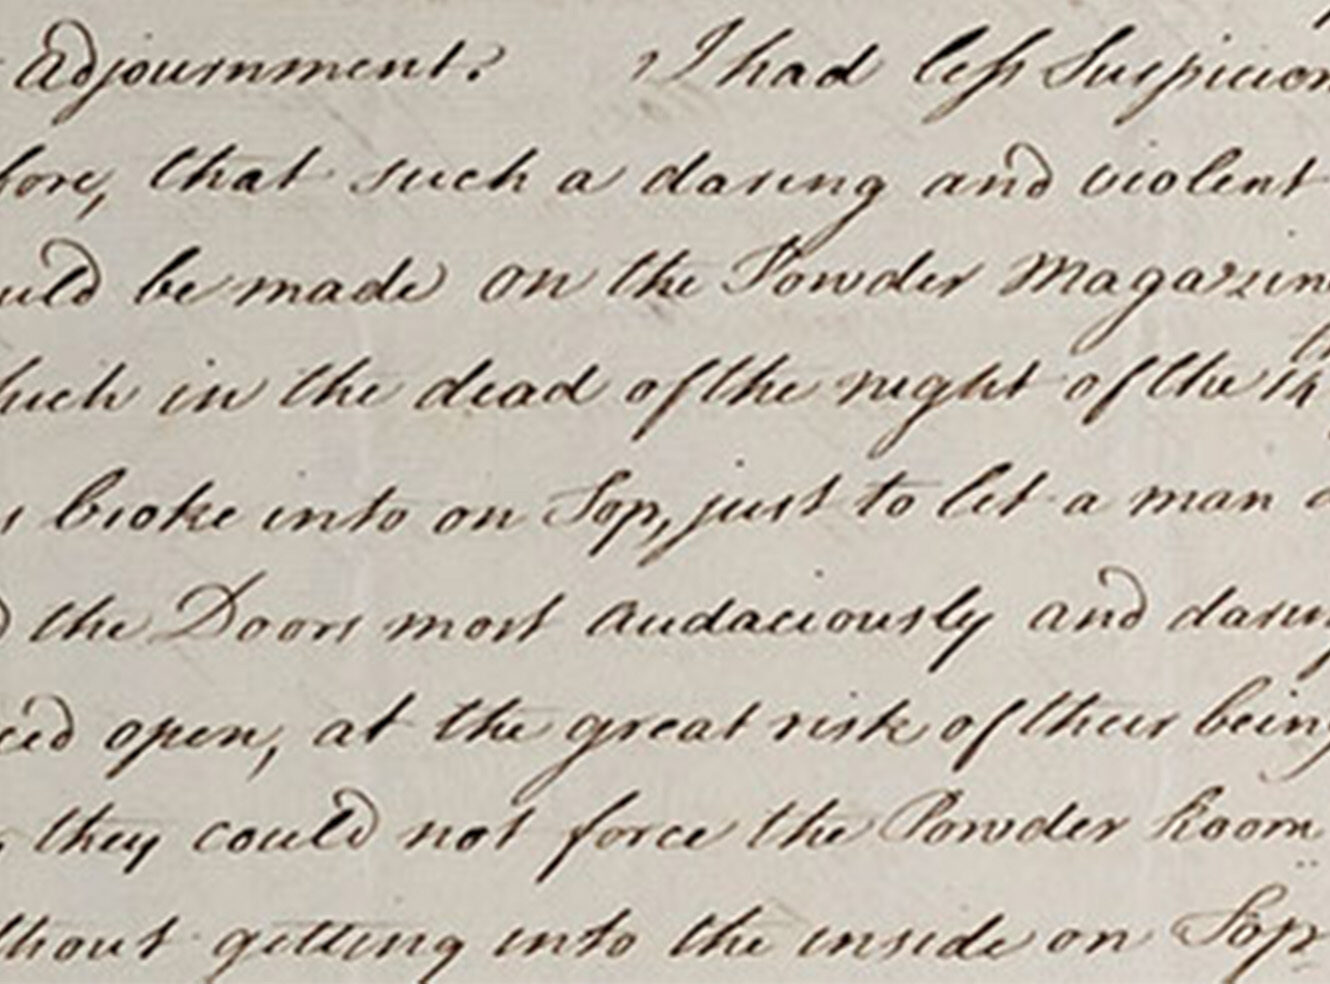 Adjournment. I had less Suspicion
fore, that such a daring and violent
uld be made on the Powder Magazin
hich in the dead of the night of the 14th
s broke into on Top, just to let a man
d the Doors most audaciously and darin
ced open, at the great risk of their being
they could not force the Powder Room
thout getting into the inside on Top